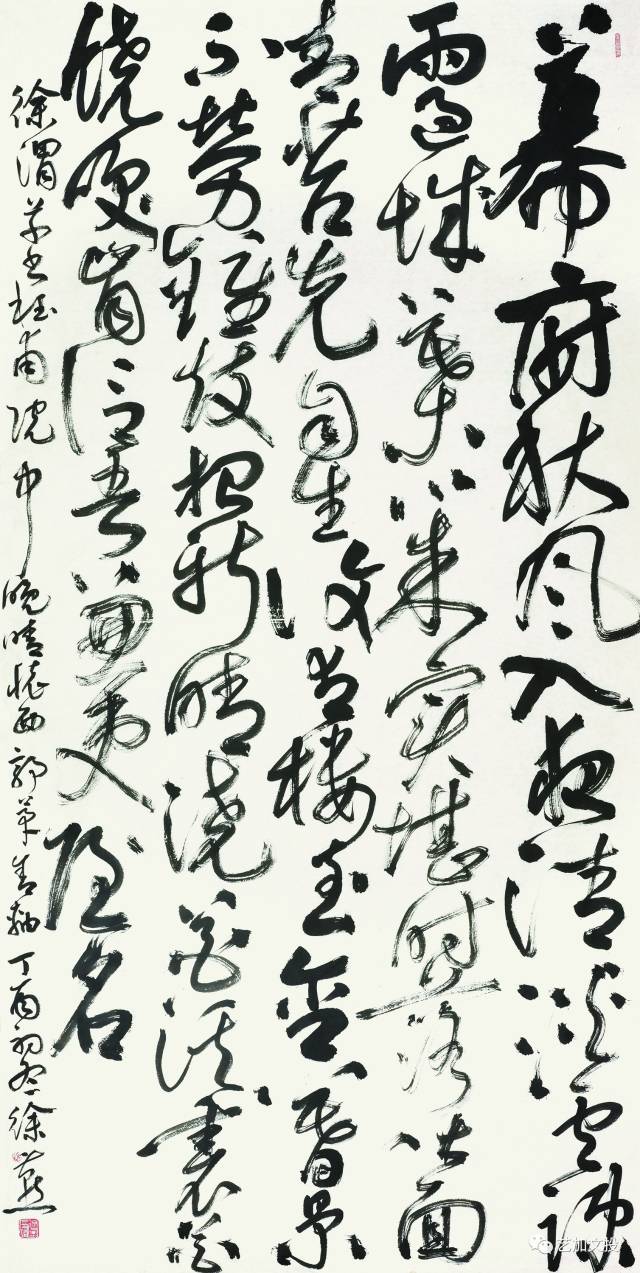 幕府秋风入夜清淡云疎
雨過城葉心朱实堪时落阶面
青苔先自生復有楼台含暮景
不劳鐘鼓报新晴浣花溪裏花
饶笑肯信吾兼吏隐名
徐渭草书杜甫院中晚晴怀西郭茅舍轴丁酉初冬徐燕
艺加文投